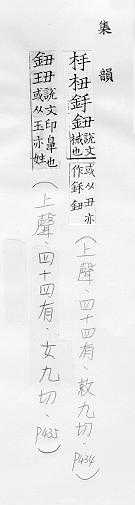 集韻
杽杻銔鈕 說文械也或从丑亦作銔鈕（上聲．四十四有．敕九切．P434）
鈕 說文印鼻也或从玉亦姓（上聲．四十四有．女九切．P435）